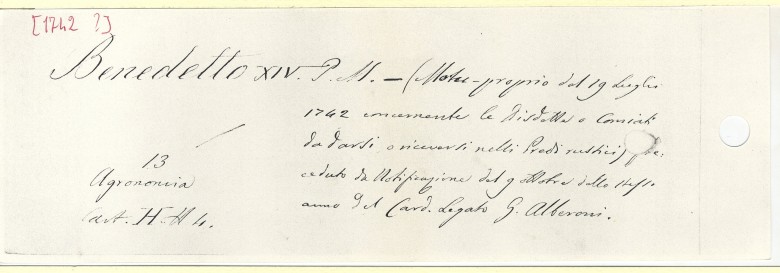 [1742 ?]
Benedetto XIV. P. M. — (Motu-proprio del 19 Luglio
1742 concernente le Disdette o Comiati
da darsi, o riceversi nelli Predi rustici) pre:
ceduto da Notificazione del 9 ottobre dello stesso
anno del Card. Legato G. Alberoni.
13
Agronomia
Cart. H. N 4.